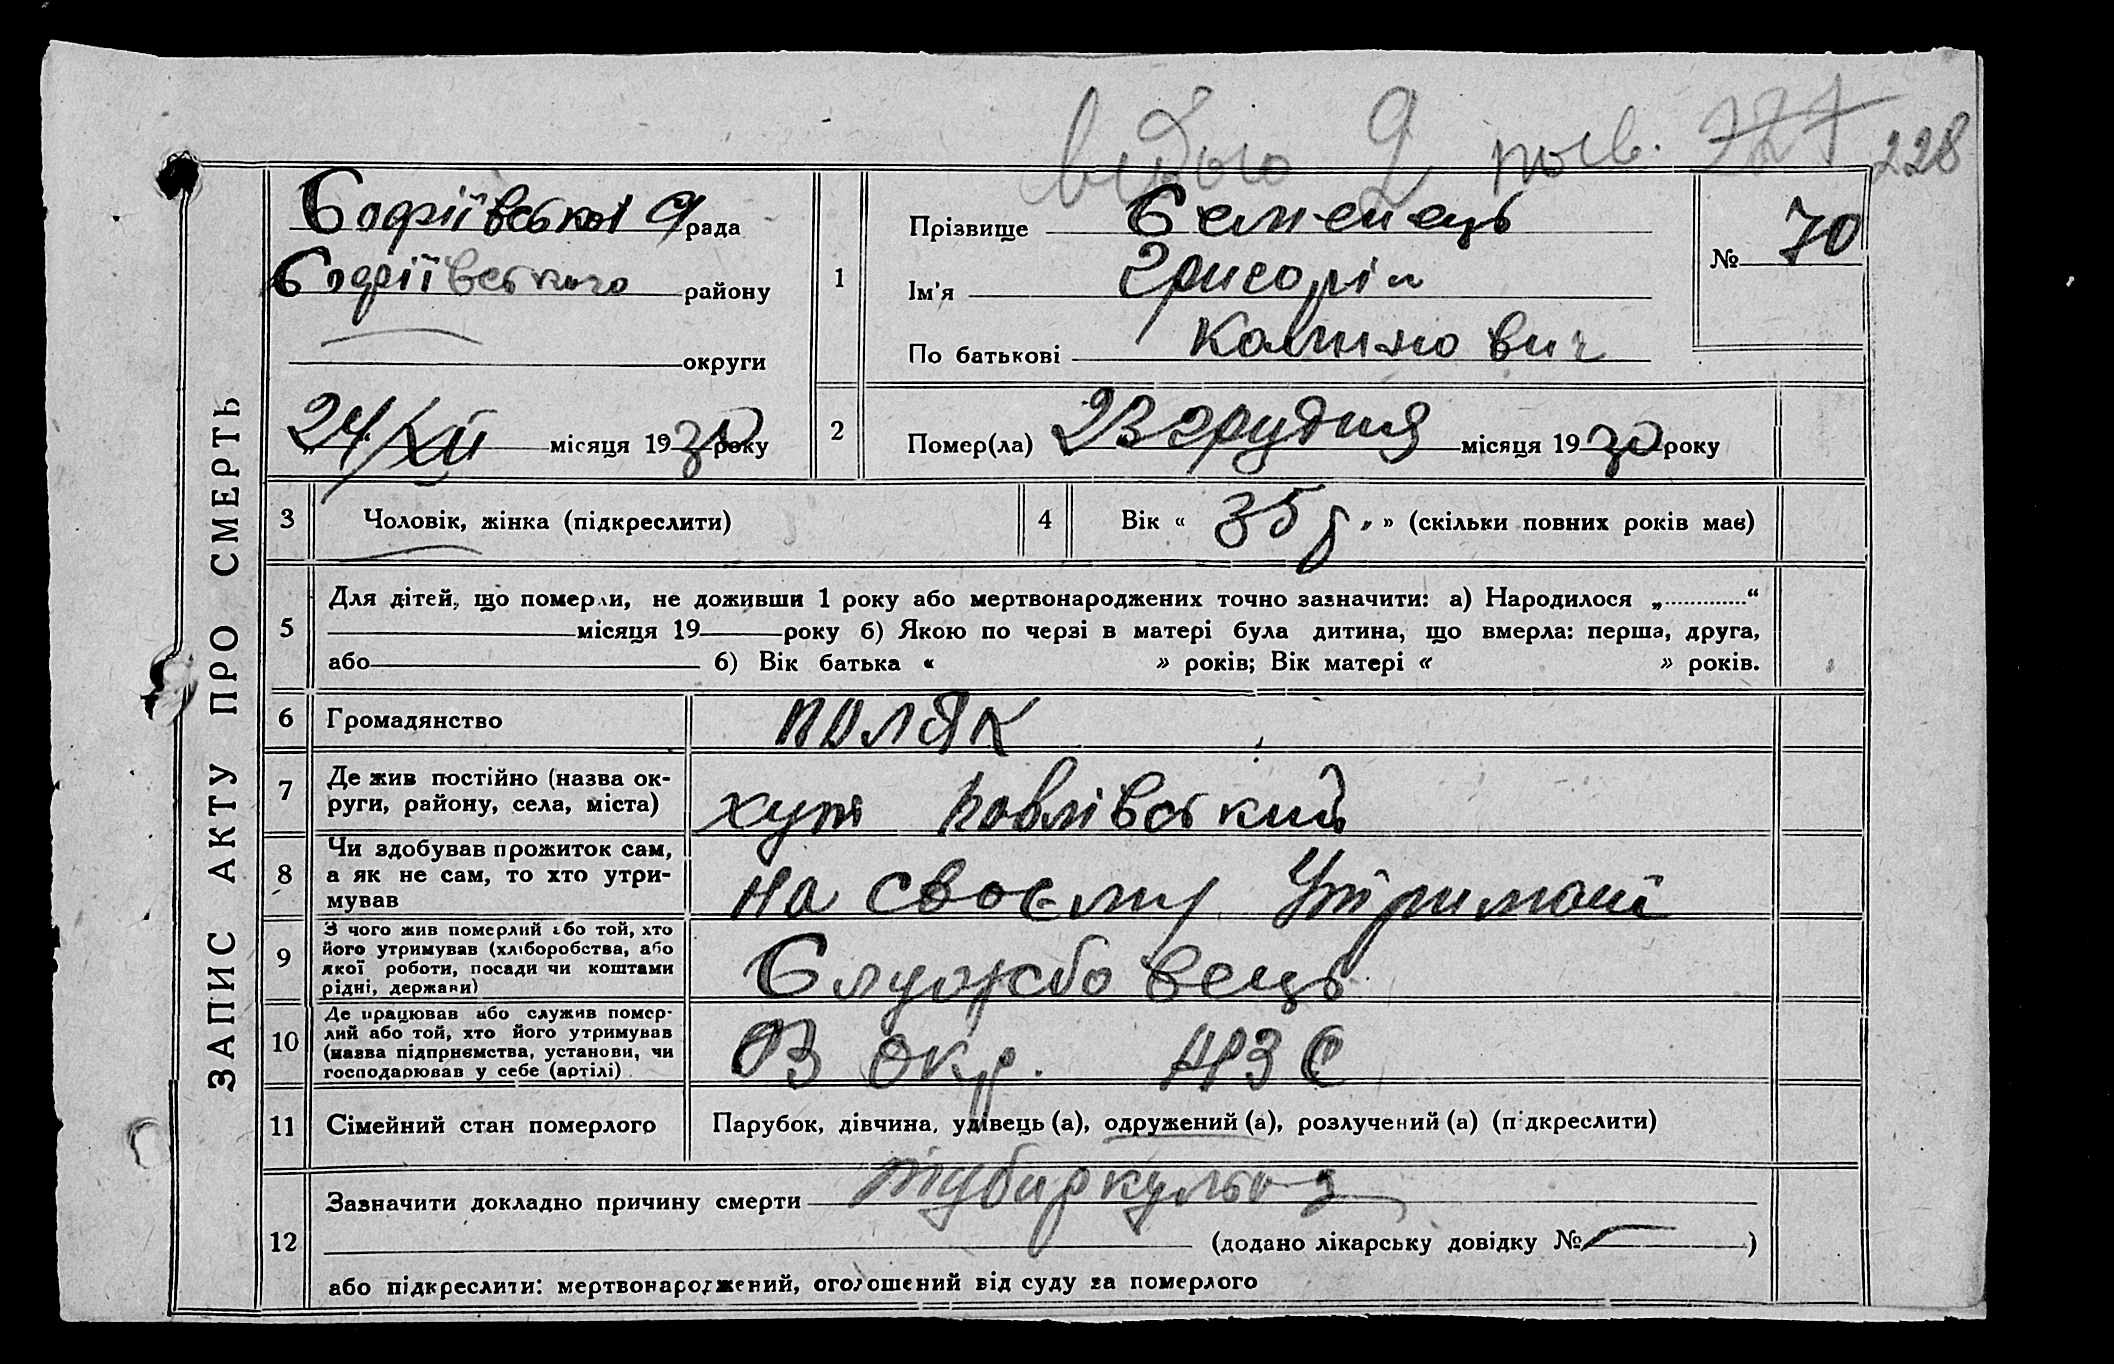 228
ЗАПИС АКТУ ПРО СМЕРТЬ
Софіївської рада
Софіївського району
округи
24/XII місяця 1930 року
1
Прізвище Семенець
Ім'я Григорій
По батькові
№ 70
2
Помер(ла) 23 грудня місяця 1930 року
3
Чоловік, жінка (підкреслити)
4
Вік « 35 р. » (скільки повних років мав)
5
Для дітей, що померли, не доживши 1 року або мертвонароджених точно зазначити: а) Народилося „.............“
місяця 19 року б) Якою по черзі в матері була дитина, що вмерла: перша, друга,
або 6) Вік батька « » років; Вік матері « » років.
6
Громадянство
поляк
7
Де жив постійно (назва ок-
руги, району, села, міста)
хут Павлівський
8
Чи здобував прожиток сам,
а як не сам, то хто утри-
мував
на своєму Утриманї
9
З чого жив померлий або той, хто
його утримував (хліборобства, або
якої роботи, посади чи коштами
рідні, держави)
Службовець
10
Де працював або служив помер-
лий або той, хто його утримував
(назва підприємства, установи, чи
господарював у себе (артілі)
В окр.
11
Сімейний стан померлого
Парубок, дівчина, удівець (а), одружений (а), розлучений (а) (підкреслити)
12
Зазначити докладно причину смерти тубаркульоз
(додано лікарську довідку № )
або підкреслити: мертвонароджений, оголошений від суду за померлого